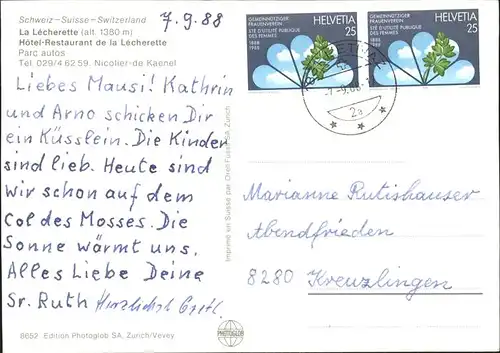 Schweiz-Suisse-Switzerland
7.9.88
La Lécherette (alt. 1380 m)
Hôtel-Restaurant de la Lécherette
Parc autos
Tel. 029/4 62 59. Nicolier-de Kaenel
Liebes Mausi! Kathrin
und Arno schicken Dir
ein Küsslein. Die Kinder
sind lieb. Heute sind
wir schon auf dem
Col des Mosses. Die
Sonne wärmt uns.
Alles Liebe Deine
Sr. Ruth Herzlichst
8652 Edition Photoglob SA, Zürich/Vevey
Imprimé en Suisse par Orell Füssli SA Zürich
PHOTOGLOB
GEMEINNÜTZIGER
FRAUENVEREIN
STÉ D'UTILITÉ PUBLIQUE
DES FEMMES
1888
1988
HELVETIA
25
GEMEINNÜTZIGER
FRAUENVEREIN
STÉ D'UTILITÉ PUBLIQUE
DES FEMMES
1888
1988
HELVETIA
25
-7.-9.88
2a
Marianne Rutishauser
Abendfrieden
8280 Kreuzlingen